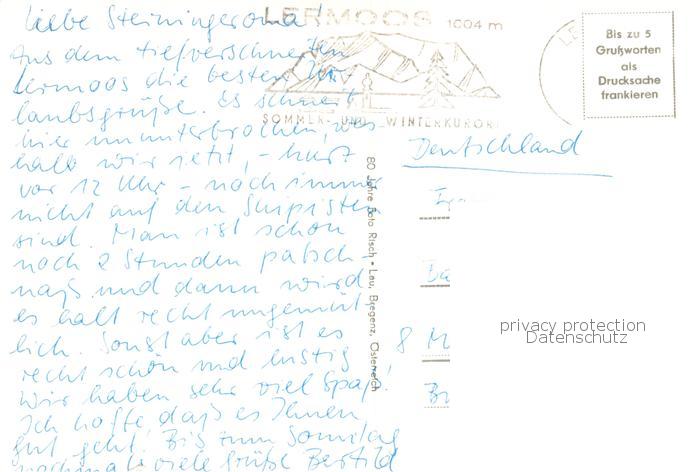 Liebe Steiningeroma!
Aus dem tiefverschneiten
Lermoos die besten Ur-
laubsgrüße. Es schneit
hier ununterbrochen, wes-
halb wir jetzt, - kurz
vor 12 Uhr - noch immer
nicht auf den Skipisten
sind. Man ist schon
nach 2 Stunden patsch-
naß und dann wird
es halt recht ungemüt-
lich. Sonst aber ist es
recht schön und lustig
Wir haben sehr viel Spaß!
Ich hoffe, daß es Ihnen
gut geht! Bis zum Sonntag
nochmals viele Grüße Bertild
LERMOOS
1004 m
SOMMER- UND WINTERKURORT
LE
Bis zu 5
Grußworten
als
Drucksache
frankieren
80 Jahre Foto Risch - Lau, Bregenz, Österreich
Deutschland
Ba
8 M
Br
privacy protection
Datenschutz